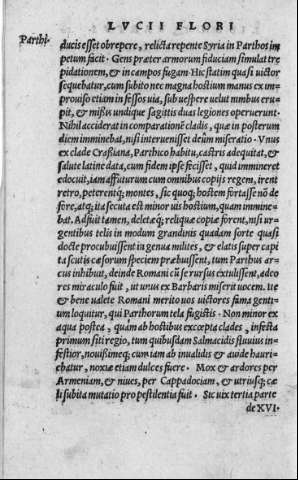 LVCII FLORI
Parthi.
ducis esset obrepere, relicta repente Syria in Parthos im
petum facit. Gens præter armorum fiduciam simulat tre
pidationem, & in campos fugam. Hic statim quasi uictor
sequebatur, cum subito nec magna hostium manus ex im-
prouiso etiam in fessos uia, sub uespere uelut nimbus eru-
pit, & missis undique sagittis duas legiones operuerunt.
Nihil acciderat in comparatione cladis, quæ in posterum
diem imminebat, nisi interuenisset deûm miseratio. Vnus
ex clade Crassiana, Parthico habitu, castris adequitat, &
salute latine data, cum fidem ipse fecisset, quid immineret
edocuit, iam affuturum cum omnibus copijs regem, irent
retro, peterentq; montes, sic quoq; hostem fortasse nō de
fore, atq; ita secuta est minor uis hostium, quam immine-
bat. Adfuit tamen, deletæq; reliquæ copiæ forent, nisi ur
gentibus telis in modum grandinis quadam sorte quasi
docte procubuissent in genua milites, & elatis super capi
ta scutis cæsorum speciem præbuissent, tum Parthus ar-
cus inhibuit, deinde Romani cū se rursus extulissent, adeo
res miraculo fuit, ut unus ex Barbaris miserit uocem. Ite
& bene ualete Romani merito uos uictores fama genti
um loquitur, qui Parthorum tela fugistis. Non minor ex
aqua postea, quàm ab hostibus excepta clades, infesta
primum siti regio, tum quibusdam Salmacidis fluuius in-
festior, nouissimeq; cum iam ab inualidis & auide hauri-
ebatur, noxiæ etiam dulces fuere. Mox & ardores per
Armeniam, & niues, per Cappadociam, & utriusq; cæ
li subita mutatio pro pestilentia fuit. Sic uix tertia parte
de XVI.